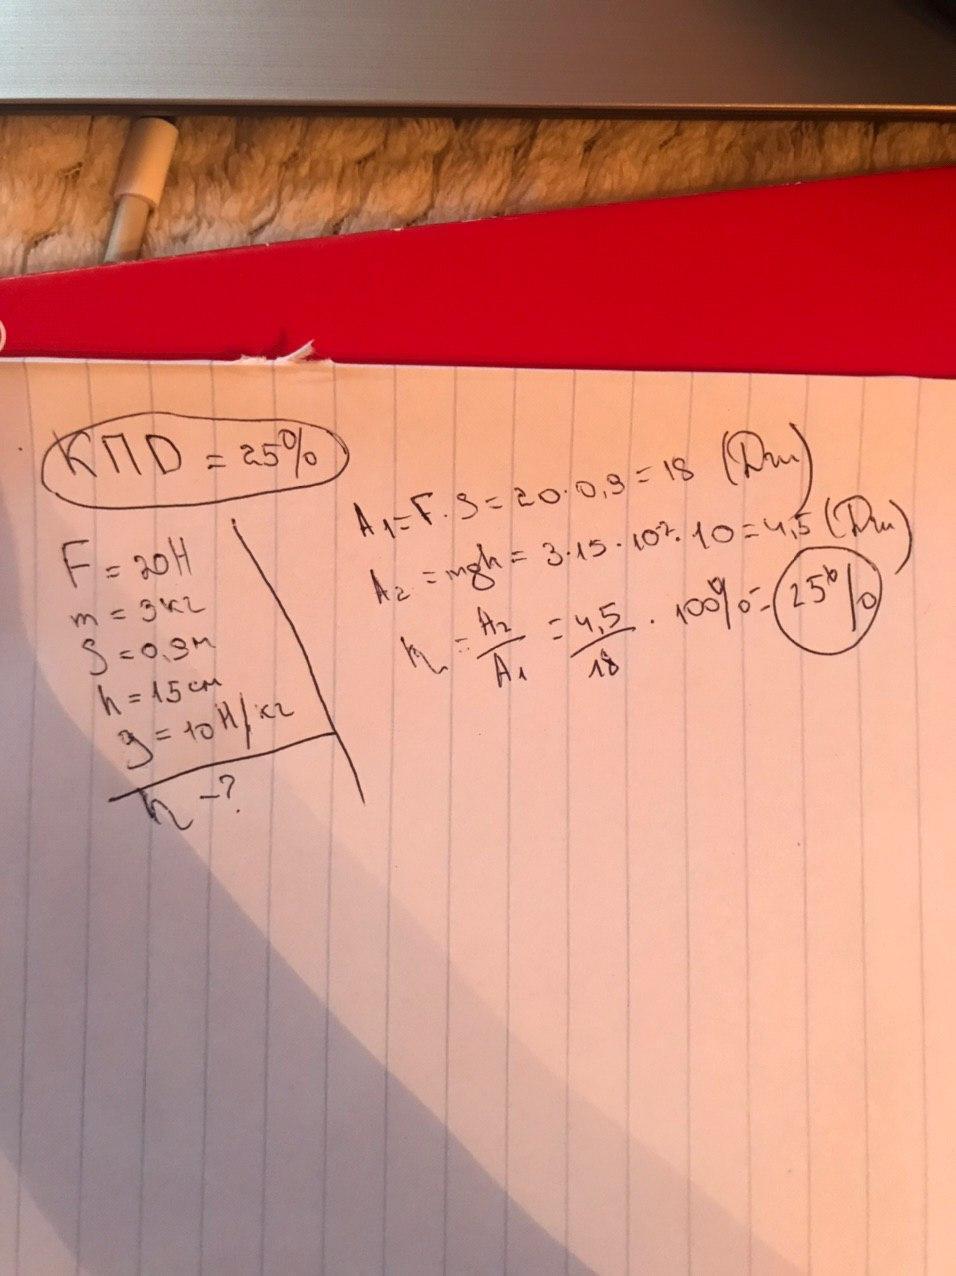 КПД = 25%
F = 20Н
m = 3кг
S = 0,9м
h = 15см
g = 10Н/кг
η -?
A₁ = F · S = 20 · 0,9 = 18 (Дж)
A₂ = mgh = 3 · 15 · 10⁻² · 10 = 4,5 (Дж)
η = A₂/A₁ = 4,5/18 · 100% = 25%